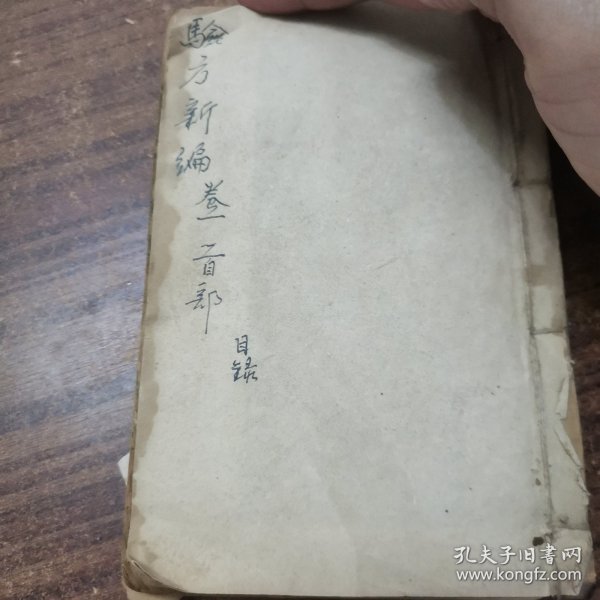 驗方新编卷一首部
目録
孔夫子旧书网
www.kongfz.com